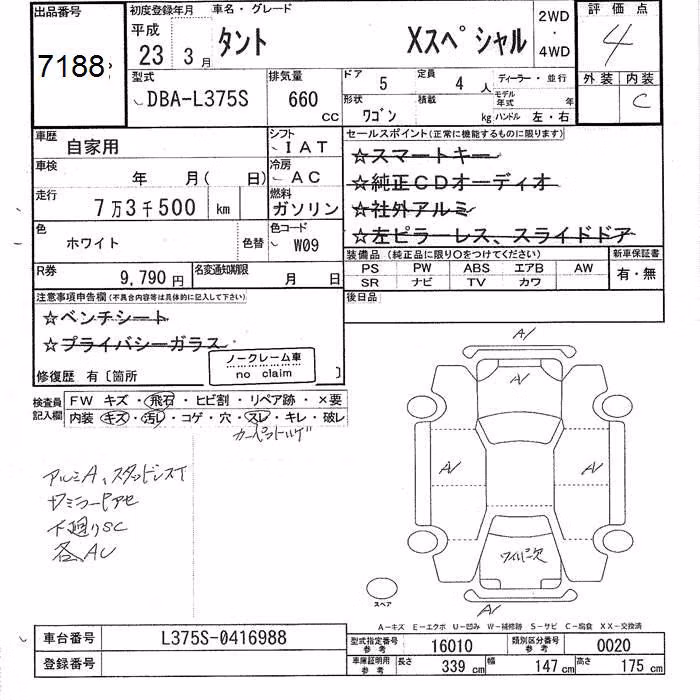 出品番号 初度登録年月 車名・グレード 2WD 評価点
平成
23 3月 タント Xスペシャル ・ 4
7188 4WD
型式 排気量 ドア 5 定員 4人 ディーラー・並行 外装 内装
DBA-L375S 660 cc 形状 ワゴン 積載 kg モデル年式 年 ハンドル 左・右 C
車歴 自家用 シフト IAT セールスポイント(正常に機能するものに限ります)
車検 年 月( 日) 冷房 AC ☆スマートキー
走行 7万3千500 km 燃料 ガソリン ☆純正CDオーディオ
☆社外アルミ
色 ホワイト 色替 色コード W09 ☆左ピラーレス、スライドドア
装備品(純正品に限り○をつけてください) 新車保証書
R券 9,790円 名変通知期限 月 日 PS PW ABS エアB AW 有・無
SR ナビ TV カワ
注意事項申告欄(不具合内容等は具体的に記入して下さい) 後日品
☆ベンチシート
☆プライバシーガラス
ノークレーム車
修復歴 有〔箇所 no claim 〕
検査員 FW キズ・飛石・ヒビ割・リペア跡・×要
記入欄 内装 キズ・汚レ・コゲ・穴・スレ・キレ・破レ
A1
A1
A1 A1
下廻りSC
各AU
ワイパー欠
スペア
A1
A-キズ E-エクボ U-凹み W-補修跡 S-サビ C-腐食 XX-交換済
車台番号 L375S-0416988 型式指定番号 参考 16010 類別区分番号 参考 0020
登録番号 車庫証明用 参考 長さ 339cm 幅 147cm 高さ 175cm